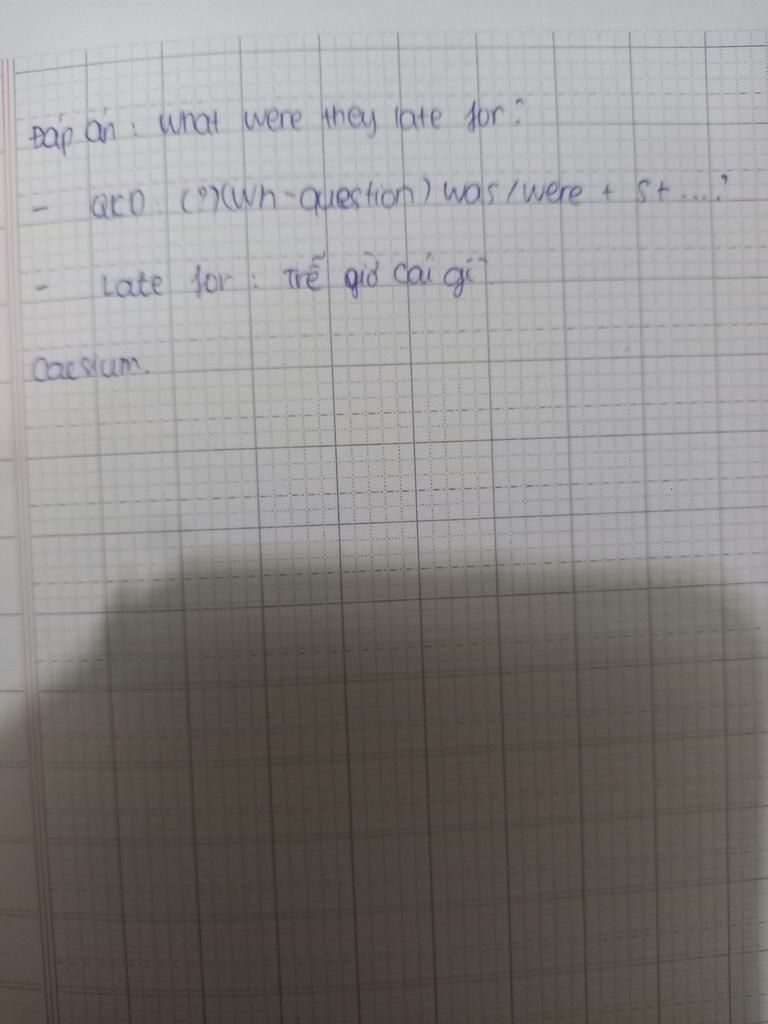 Đáp án : What were they late for?
- QKD : (?)(Wh-question) was/were + S+ ...?
- Late for : Trễ giờ cái gì
Caesium.